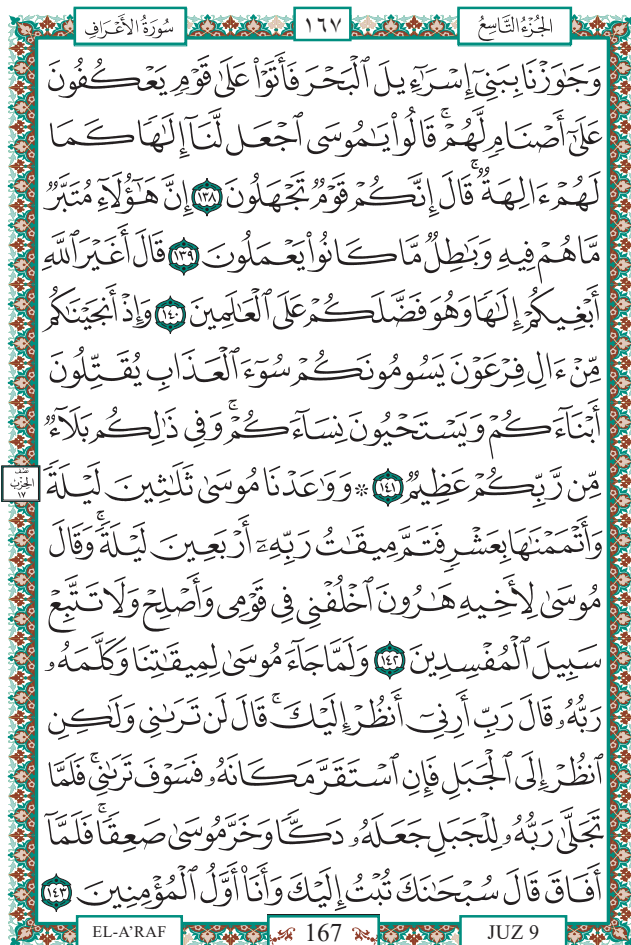 الجُزْءُ التَّاسِعُ ١٦٧ سُورَةُ الأَعْرَافِ
وَجَٰوَزْنَا بِبَنِىٓ إِسْرَٰٓءِيلَ ٱلْبَحْرَ فَأَتَوْا۟ عَلَىٰ قَوْمٍ يَعْكُفُونَ
عَلَىٰٓ أَصْنَامٍ لَّهُمْ ۚ قَالُوا۟ يَٰمُوسَى ٱجْعَل لَّنَآ إِلَٰهًا كَمَا
لَهُمْ ءَالِهَةٌ ۚ قَالَ إِنَّكُمْ قَوْمٌ تَجْهَلُونَ ١٣٨ إِنَّ هَٰٓؤُلَآءِ مُتَبَّرٌ
مَّا هُمْ فِيهِ وَبَٰطِلٌ مَّا كَانُوا۟ يَعْمَلُونَ ١٣٩ قَالَ أَغَيْرَ ٱللَّهِ
أَبْغِيكُمْ إِلَٰهًا وَهُوَ فَضَّلَكُمْ عَلَى ٱلْعَٰلَمِينَ ١٤٠ وَإِذْ أَنجَيْنَٰكُم
مِّنْ ءَالِ فِرْعَوْنَ يَسُومُونَكُمْ سُوٓءَ ٱلْعَذَابِ يُقَتِّلُونَ
أَبْنَآءَكُمْ وَيَسْتَحْيُونَ نِسَآءَكُمْ ۚ وَفِى ذَٰلِكُم بَلَآءٌ
مِّن رَّبِّكُمْ عَظِيمٌ ١٤١ ۞ وَوَٰعَدْنَا مُوسَىٰ ثَلَٰثِينَ لَيْلَةً
نصف الحزب ١٧
وَأَتْمَمْنَٰهَا بِعَشْرٍ فَتَمَّ مِيقَٰتُ رَبِّهِۦٓ أَرْبَعِينَ لَيْلَةً ۚ وَقَالَ
مُوسَىٰ لِأَخِيهِ هَٰرُونَ ٱخْلُفْنِى فِى قَوْمِى وَأَصْلِحْ وَلَا تَتَّبِعْ
سَبِيلَ ٱلْمُفْسِدِينَ ١٤٢ وَلَمَّا جَآءَ مُوسَىٰ لِمِيقَٰتِنَا وَكَلَّمَهُۥ
رَبُّهُۥ قَالَ رَبِّ أَرِنِىٓ أَنظُرْ إِلَيْكَ ۚ قَالَ لَن تَرَىٰنِى وَلَٰكِنِ
ٱنظُرْ إِلَى ٱلْجَبَلِ فَإِنِ ٱسْتَقَرَّ مَكَانَهُۥ فَسَوْفَ تَرَىٰنِى ۚ فَلَمَّا
تَجَلَّىٰ رَبُّهُۥ لِلْجَبَلِ جَعَلَهُۥ دَكًّا وَخَرَّ مُوسَىٰ صَعِقًا ۚ فَلَمَّآ
أَفَاقَ قَالَ سُبْحَٰنَكَ تُبْتُ إِلَيْكَ وَأَنَا۠ أَوَّلُ ٱلْمُؤْمِنِينَ ١٤٣
EL-A'RAF 167 JUZ 9